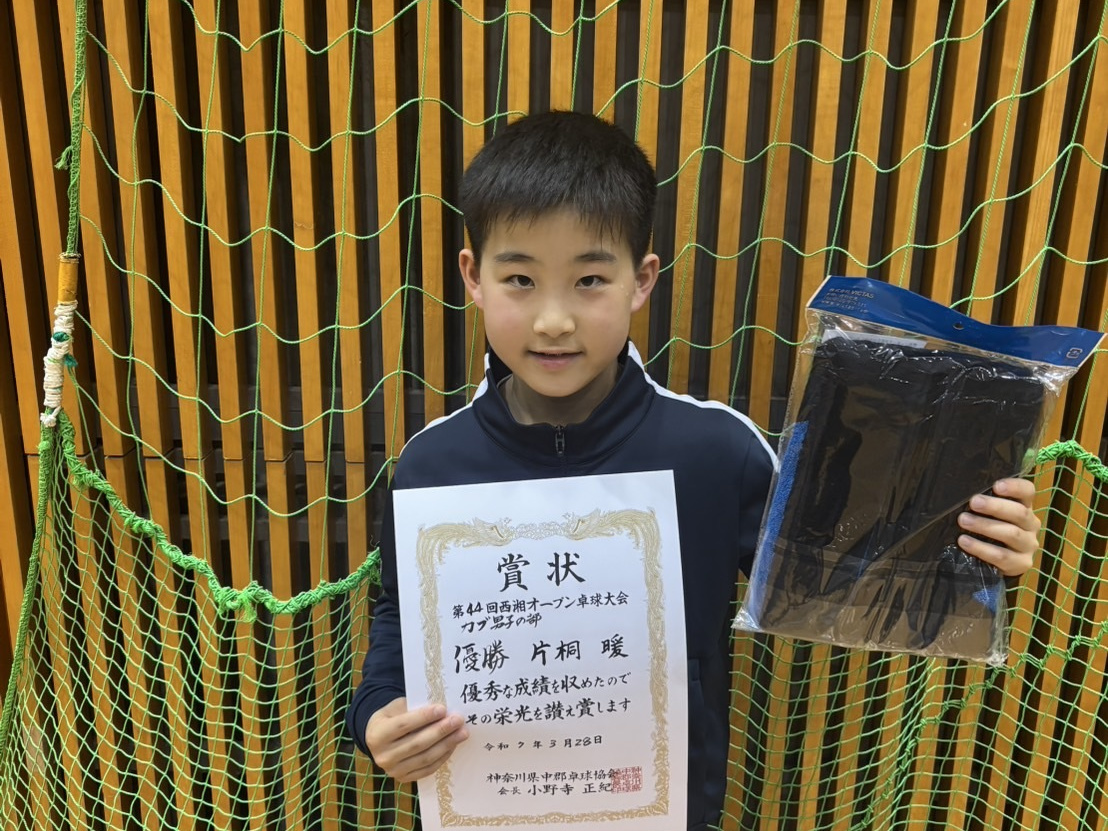 賞状
第44回西湘オープン卓球大会
カブ男子の部
優勝 片桐 暖
優秀な成績を収めたので
その栄光を讃え賞します
令和7年3月28日
神奈川県中郡卓球協会
会長 小野寺 正紀